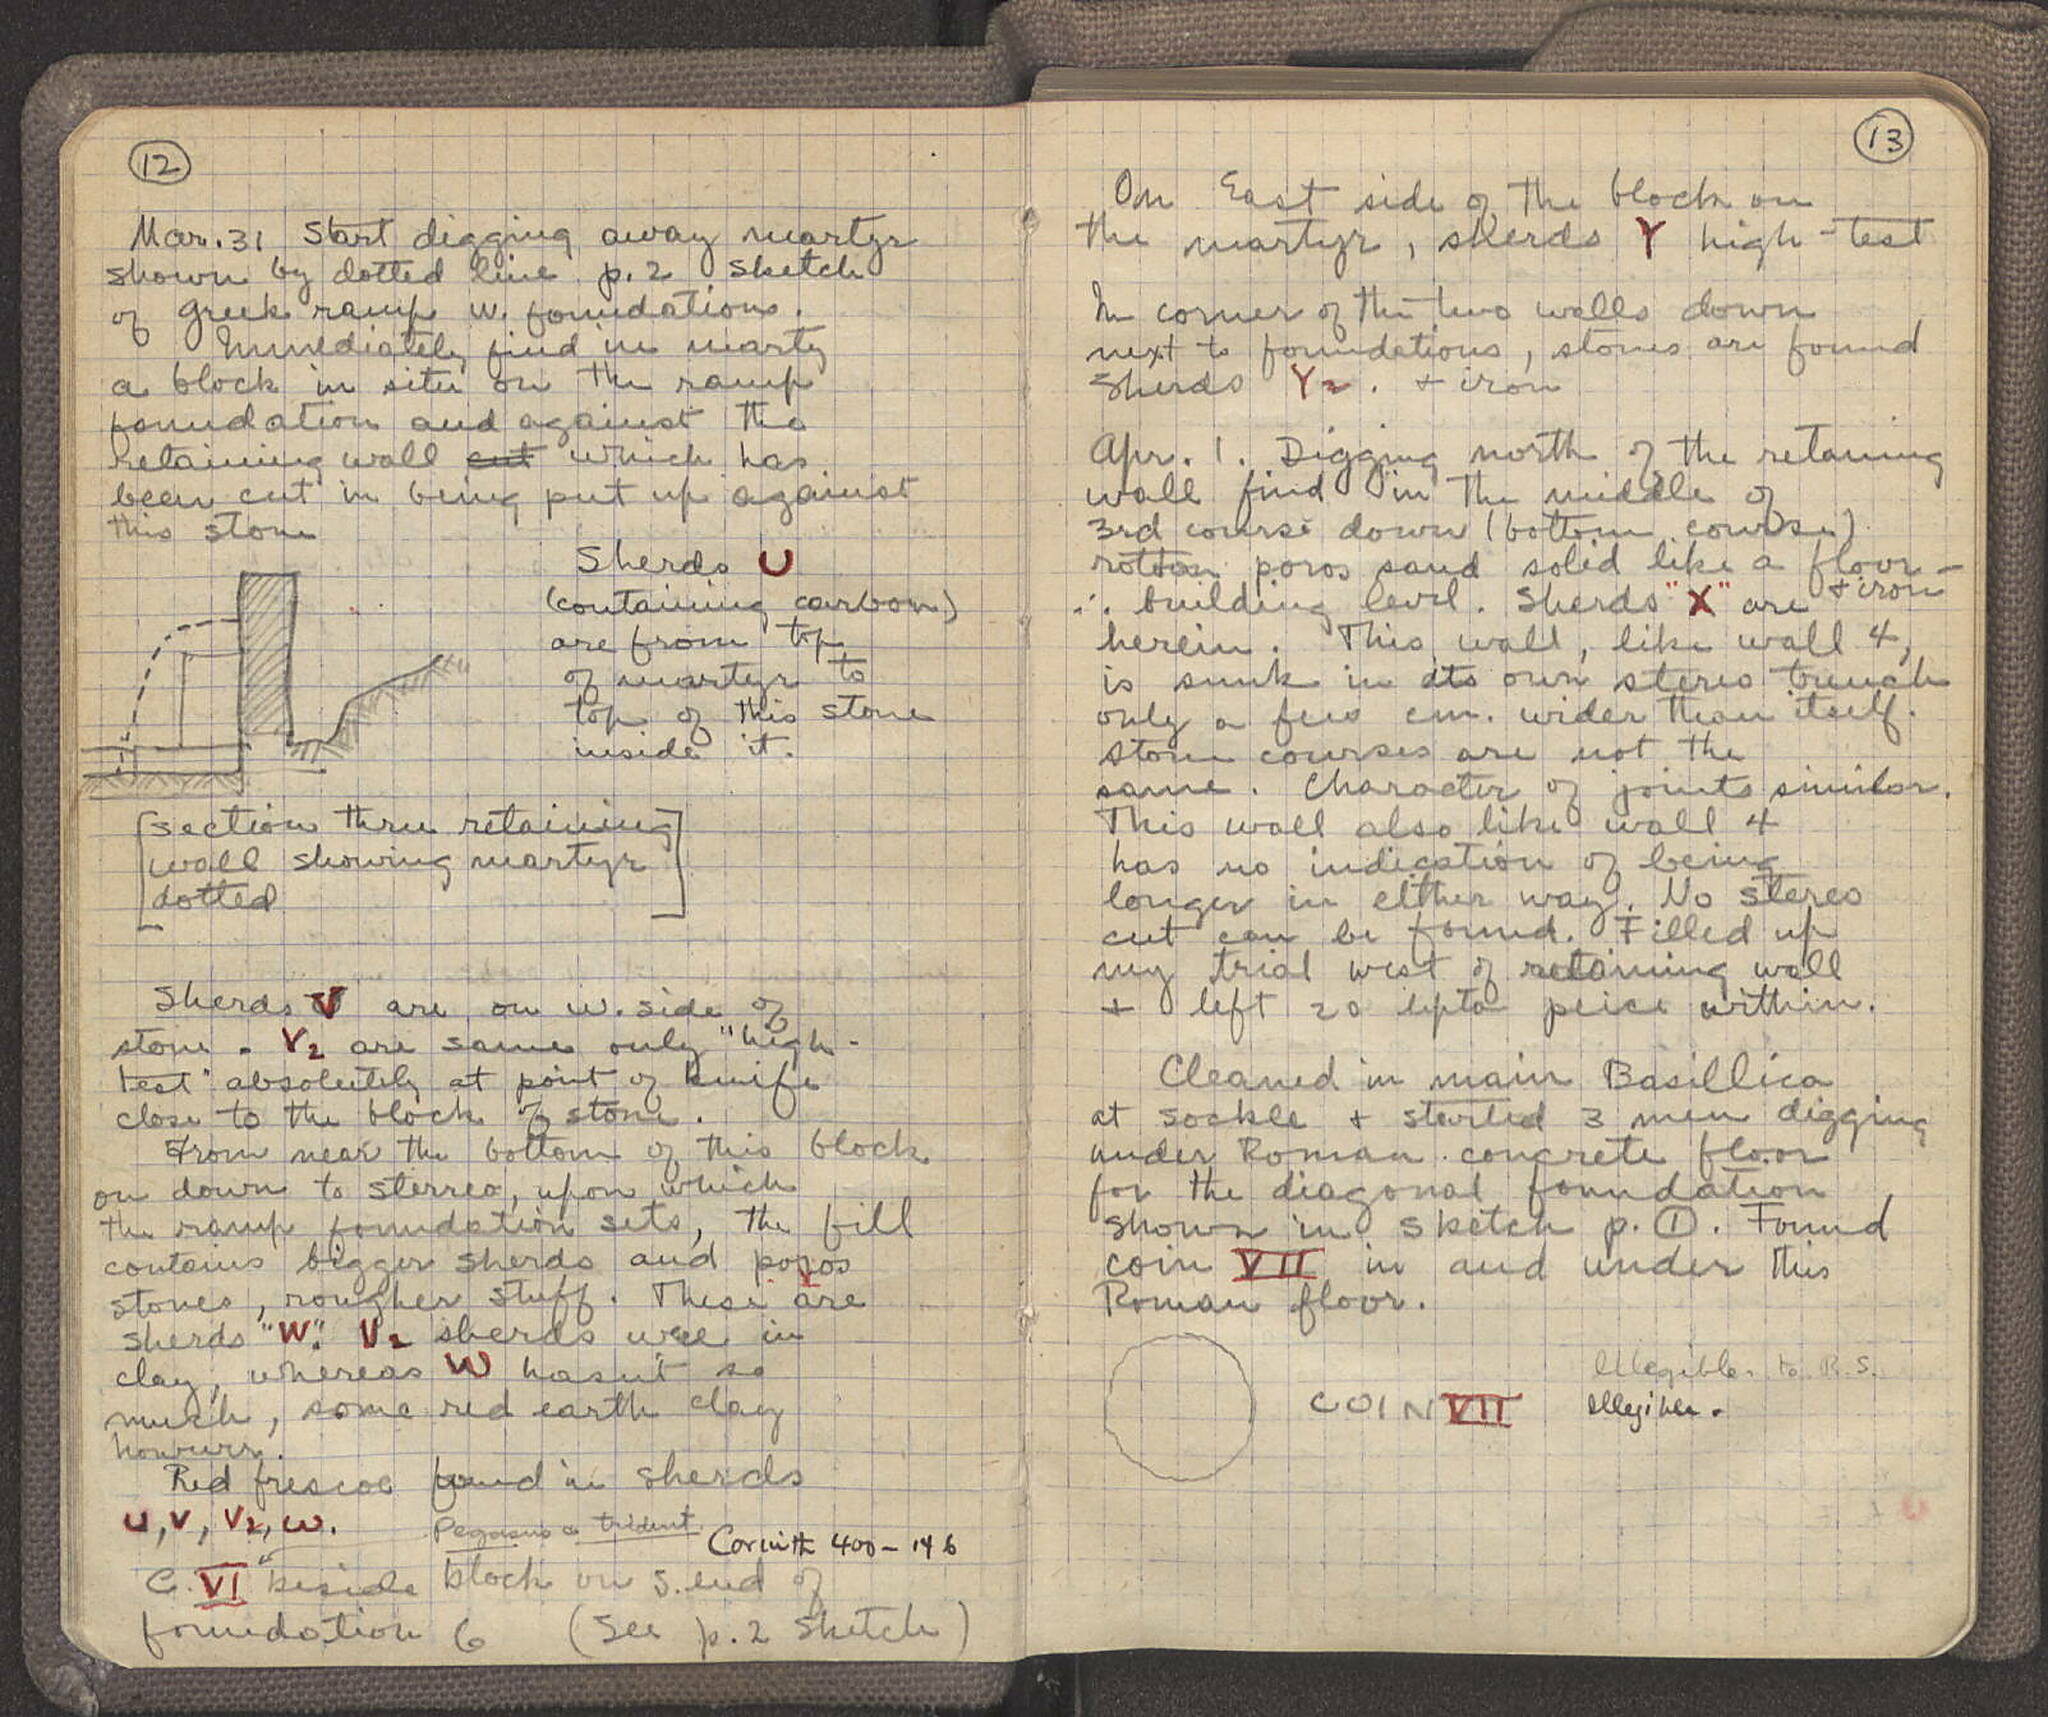 12
Mar. 31 Start digging away martyr
shown by dotted line p. 2 sketch
of Greek ramp w. foundations.
Immediately find in marty
a block in situ on the ramp
foundation and against the
retaining wall cut which has
been cut in being put up against
this stone
Sherds U
(containing carbon)
are from top
of martyr to
top of this stone
inside it.
[section thru retaining
wall showing martyr
dotted]
Sherds V are on w. side of
stone. V2 are same only "high-
test" absolutely at point of knife
close to the block of stone.
From near the bottom of this block
on down to sterreo, upon which
the ramp foundation sets, the fill
contains bigger sherds and poros
stones, rougher stuff. These are
sherds "W". V2 sherds were in
clay, whereas W hasn't so
much, some red earth clay
however.
Red frescoe found in sherds
U, V, V2, W.
Pegasus & trident
Corinth 400-146
C. VI beside block on S. end of
foundation 6 (See p. 2 sketch)
13
On East side of the block on
the martyr, sherds Y high-test
In corner of the two walls down
next to foundations, stones are found
sherds Y2. + iron
Apr. 1. Digging north of the retaining
wall find in the middle of
3rd course down (bottom course)
rotton poros sand solid like a floor -
∴ building level. Sherds "X" are + iron
herein. This wall, like wall 4,
is sunk in its own stereo trench
only a few cm. wider than itself.
Stone courses are not the
same. Character of joints similar.
This wall also like wall 4
has no indication of being
longer in either way. No stereo
cut can be found. Filled up
my trial west of retaining wall
+ left 20 lepta peice within.
Cleaned in main Basillica
at sockle + started 3 men digging
under Roman concrete floor
for the diagonal foundation
shown in sketch p. 1. Found
coin VII in and under this
Roman floor.
COIN VII
Illegible to R.S.
illegible.